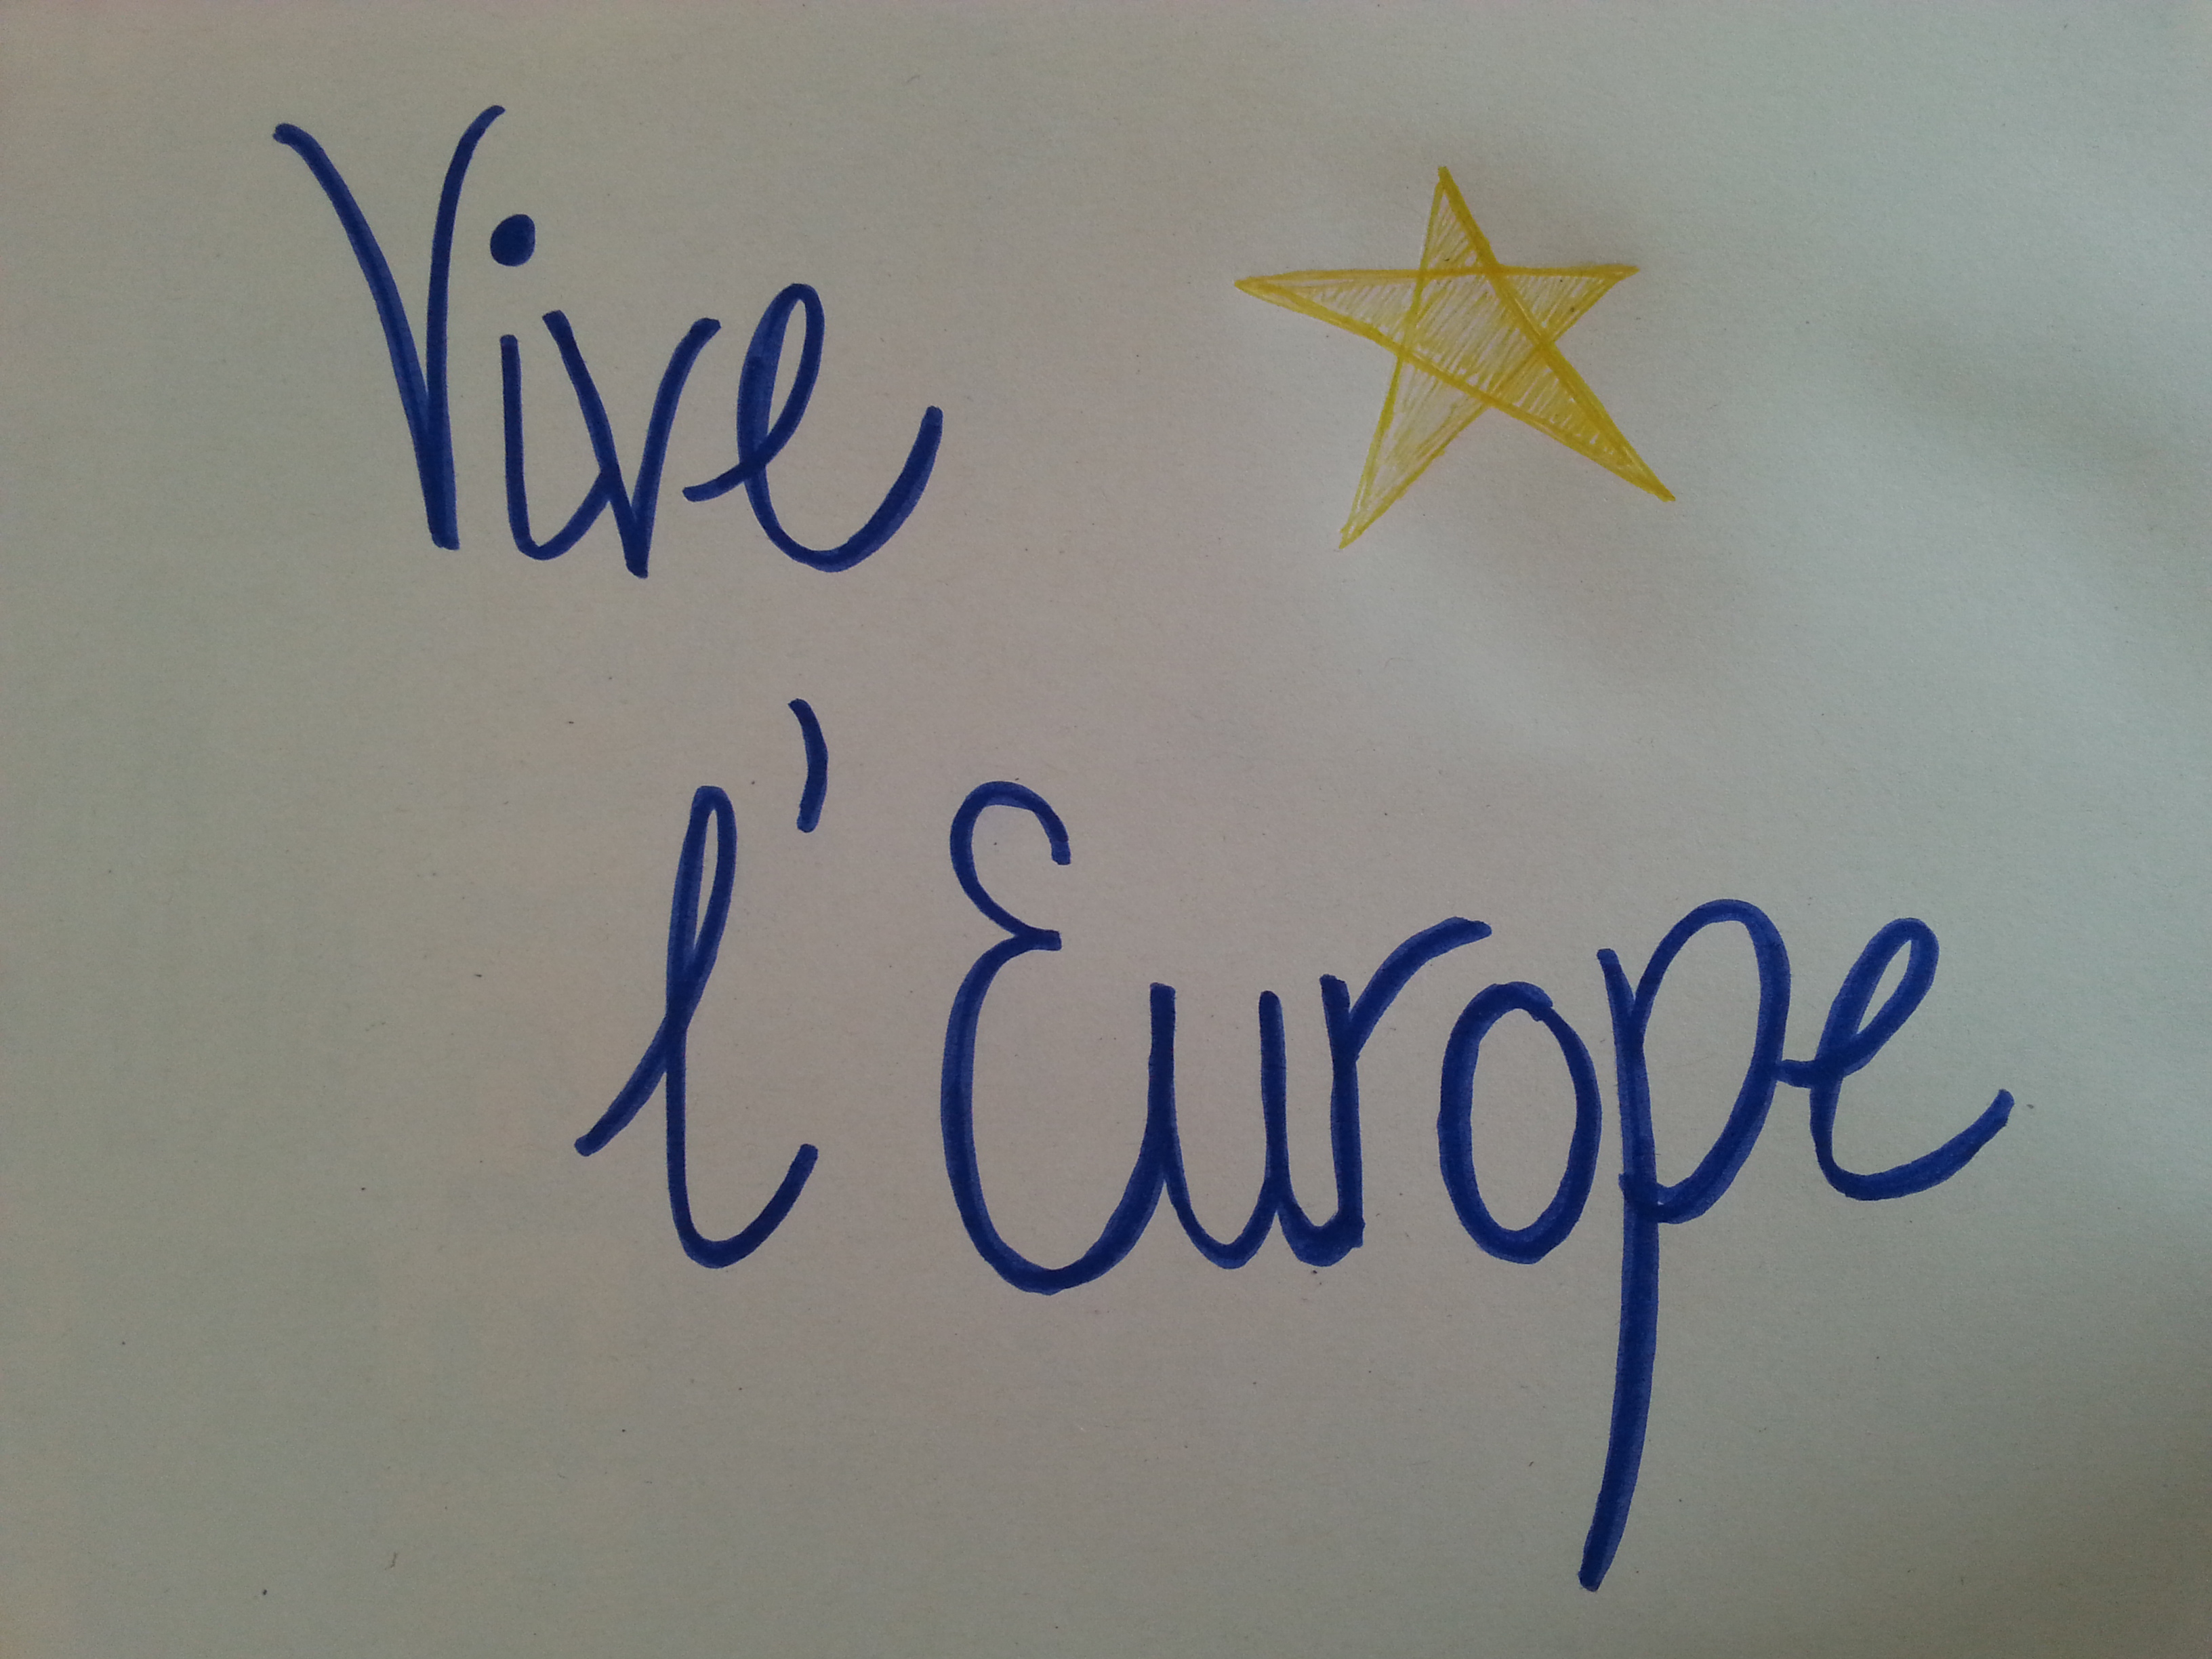 Vive
l'Europe